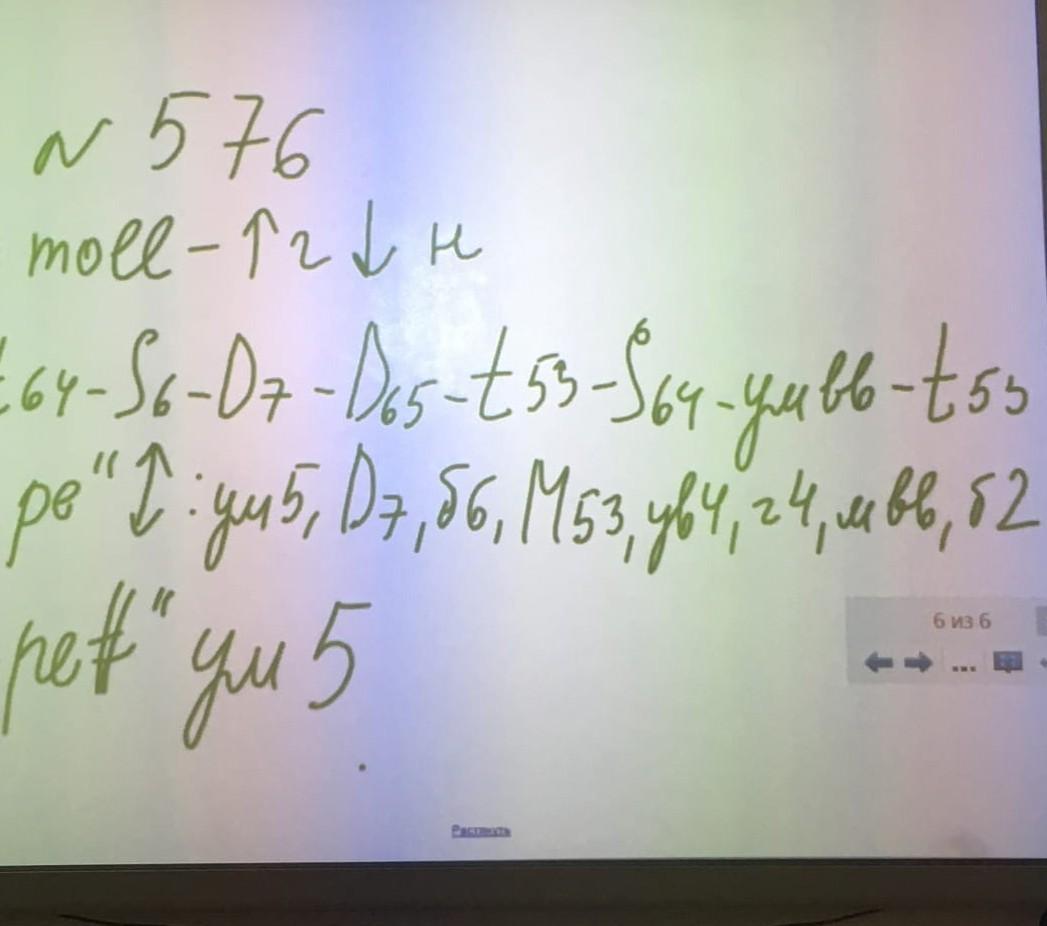 N 576
moll - ↑ г ↓ н
t64 - S6 - D7 - D65 - t53 - S64 - умвв - t53
ре" ↕ : ум5, D7, б6, М53, ув4, г4, мвв, б2
ре#" ум5
6 из 6